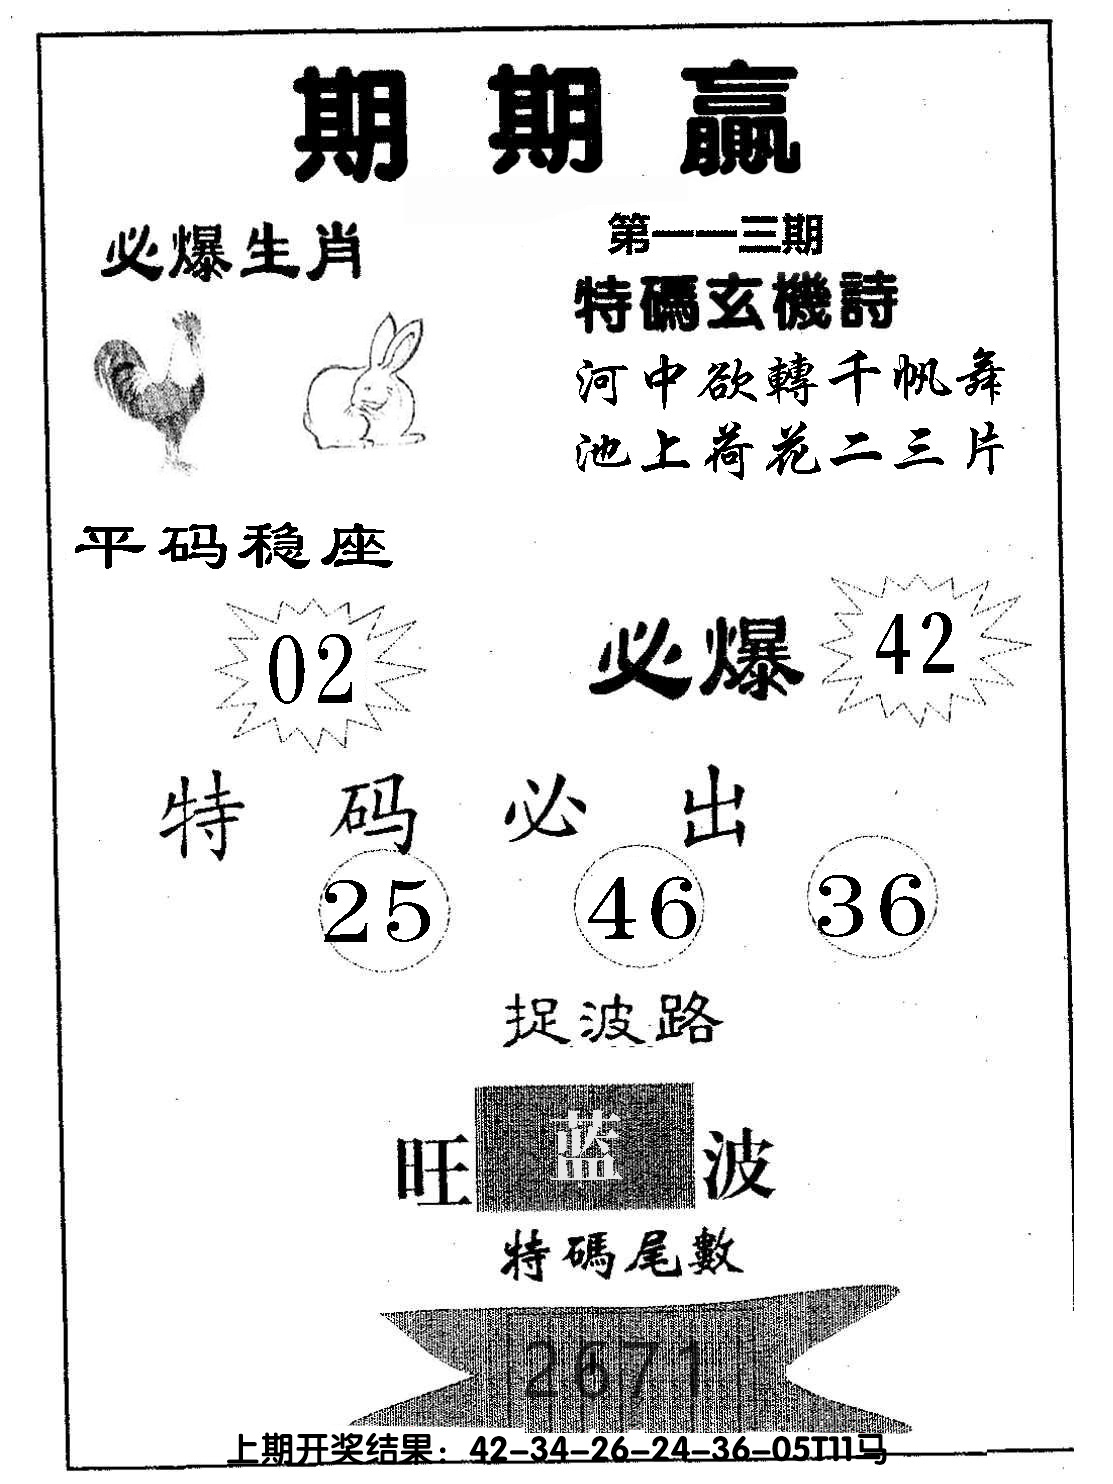 期期贏
必爆生肖
第一一三期
特碼玄機詩
河中欲轉千帆舞
池上荷花二三片
平码稳座
02
必爆 42
特码必出
25 46 36
捉波路
旺 蓝 波
特碼尾數
2671
上期开奖结果：42-34-26-24-36-05T11马